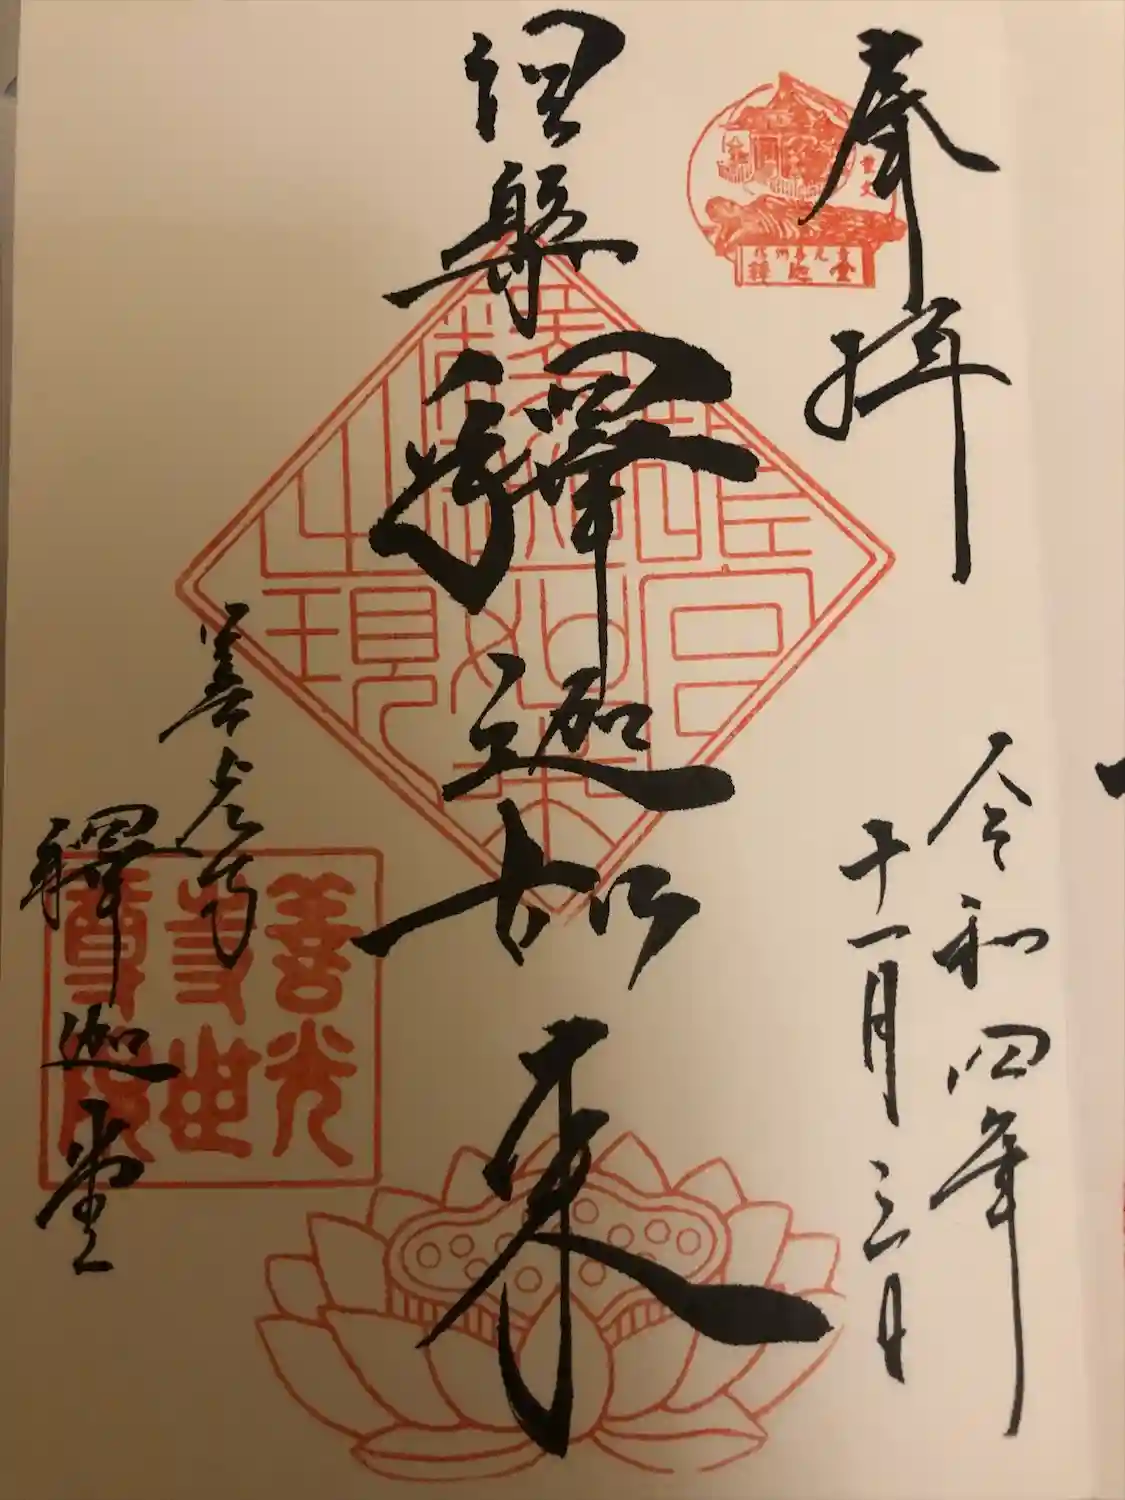 奉拝
令和四年
十一月三日
重文
信州善光寺
釋迦堂
涅槃
釋迦如来
善光寺
釋迦堂
善光
寺世
尊院